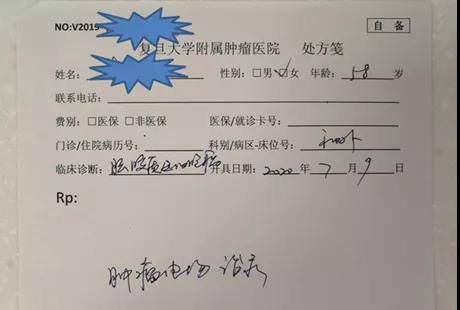 NO:V2019 自 备
复旦大学附属肿瘤医院 处方笺
姓名: 性别:□男☑女 年龄:58岁
联系电话:
费别:□医保 □非医保 医保/就诊卡号:
门诊/住院病历号: 科别/病区-床位号:
临床诊断: 开具日期:2020年7月9日
Rp:
肿瘤电场 治疗